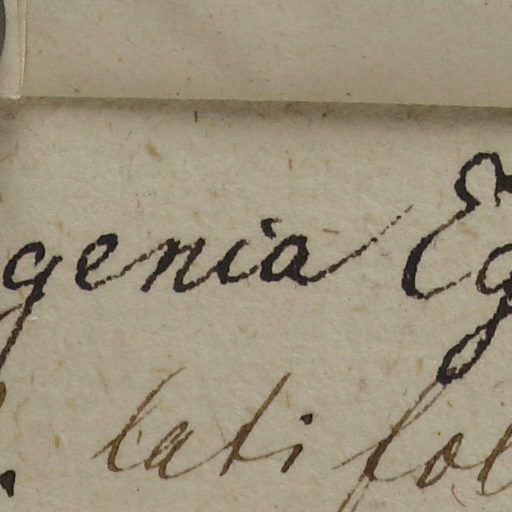 genia Eg
. latifol